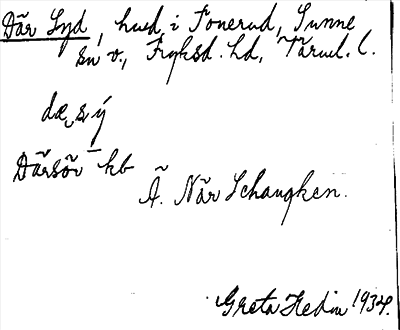 Där Syd, hmd i Tonerud, Sunne
sn v., Fryksd. hd, Värml. l.
dæ sý
Därsör kb
Ä. När Schangken.
Greta Hedin 1934.